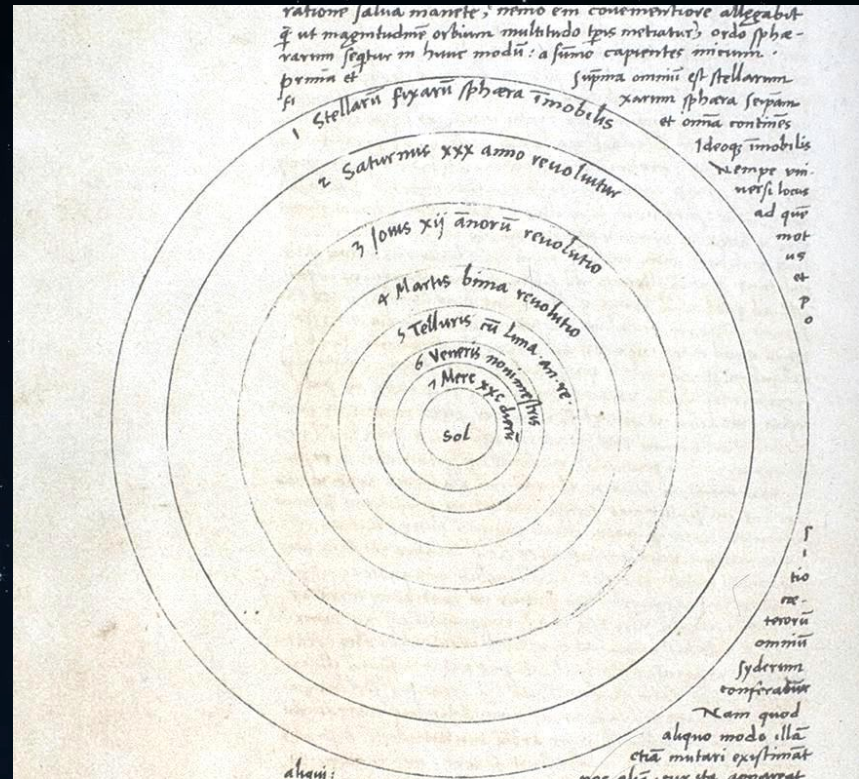 ratione salua manẽte, nemo em̃ cõuenientiore allegabit
q̃ ut magnitudinẽ orbium multitudo tp̃is metiatur, ordo sphæ-
rarum seq̃tur in hunc modũ: a sũmo capientes initium.
prima et sup̃ma omniũ est stellarum
fi xarum sphæra seip̃am
et omĩa continẽs
Ideoq̃ ĩmobilis
Nempe vni-
uersi locus
ad quẽ
mot
us
et
p
o
1 Stellarũ fixarũ sphæra ĩmobilis
2 Saturnus xxx anno reuoluitur
3 Iouis xij ãnorũ reuolutio
4 Martis bima reuolutio
5 Telluris cũ Luna an. re.
6 Veneris nonimestris
7 Merc xxc dierũ
Sol
s
i
tio
cæ-
terorũ
omniũ
syderum
conferatur
Nam quod
aliquo modo illã
etiã mutari existimãt
aliqui: